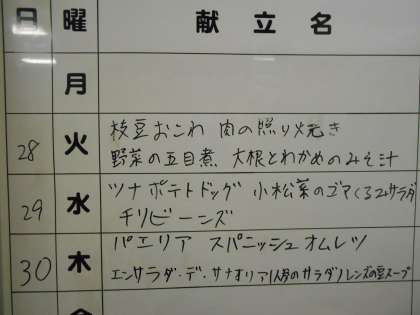 日 曜 献立名
月
28 火 枝豆おこわ 肉の照り焼き
野菜の五目煮 大根とわかめのみそ汁
29 水 ツナポテトドッグ 小松菜のゴマくるみサラダ
チリビーンズ
30 木 パエリア スパニッシュオムレツ
エンサラダ・デ・サナオリア(人参のサラダ)レンズの豆スープ